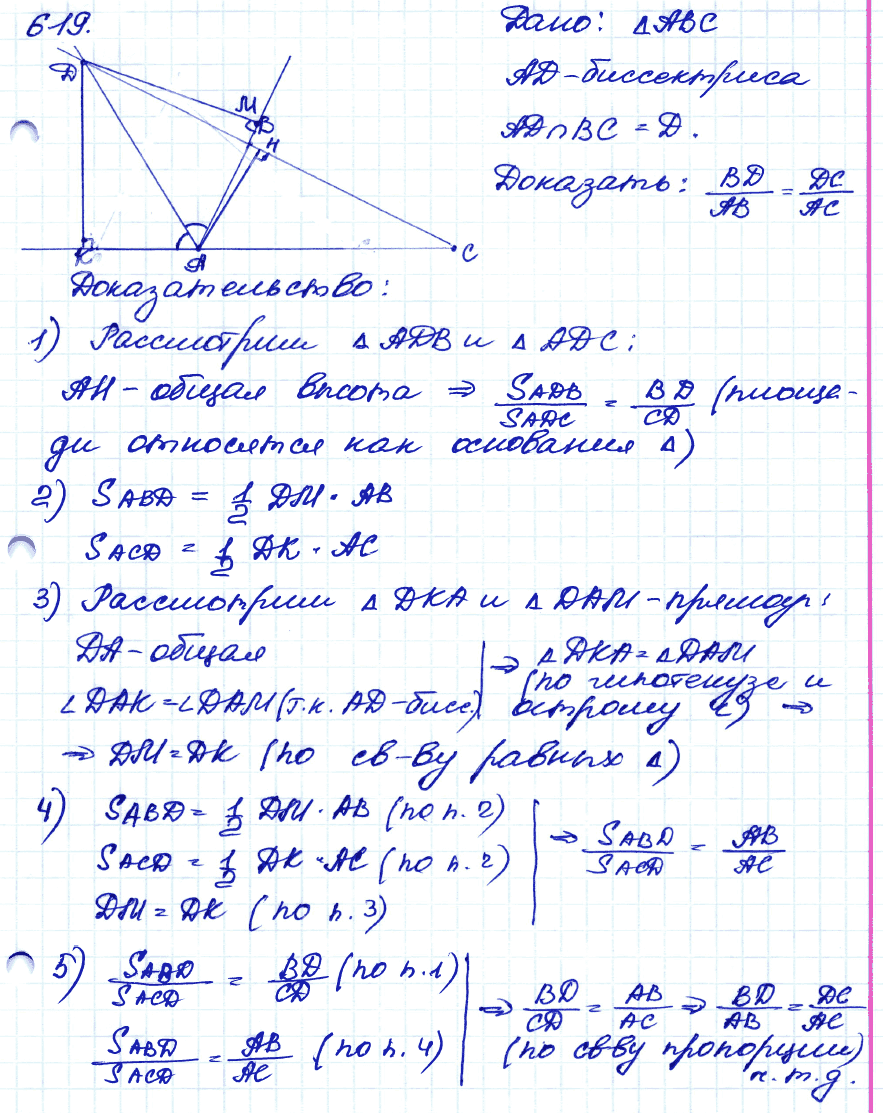 619.
Дано: △ABC
AD-биссектриса
AD∩BC = D.
Доказать: BD/AB = DC/AC
D
M
B
H
K
A
C
Доказательство:
1) Рассмотрим △ADB и △ADC:
AH - общая высота ⇒ SADB/SADC = BD/CD (площа-
ди относятся как основания △)
2) SABD = 1/2 DM · AB
SACD = 1/2 DK · AC
3) Рассмотрим △DKA и △DAM - прямоуг:
DA - общая
∠DAK = ∠DAM (т.к. AD-бисс.)
⇒ △DKA = △DAM
(по гипотенузе и
острому ∠) ⇒
⇒ DM = DK (по св-ву равных △)
4) SABD = 1/2 DM · AB (по п. 2)
SACD = 1/2 DK · AC (по п. 2)
DM = DK (по п. 3)
⇒ SABD/SACD = AB/AC
5) SABD/SACD = BD/CD (по п.1)
SABD/SACD = AB/AC (по п. 4)
⇒ BD/CD = AB/AC ⇒ BD/AB = DC/AC
(по св-ву пропорции)
ч.т.д.